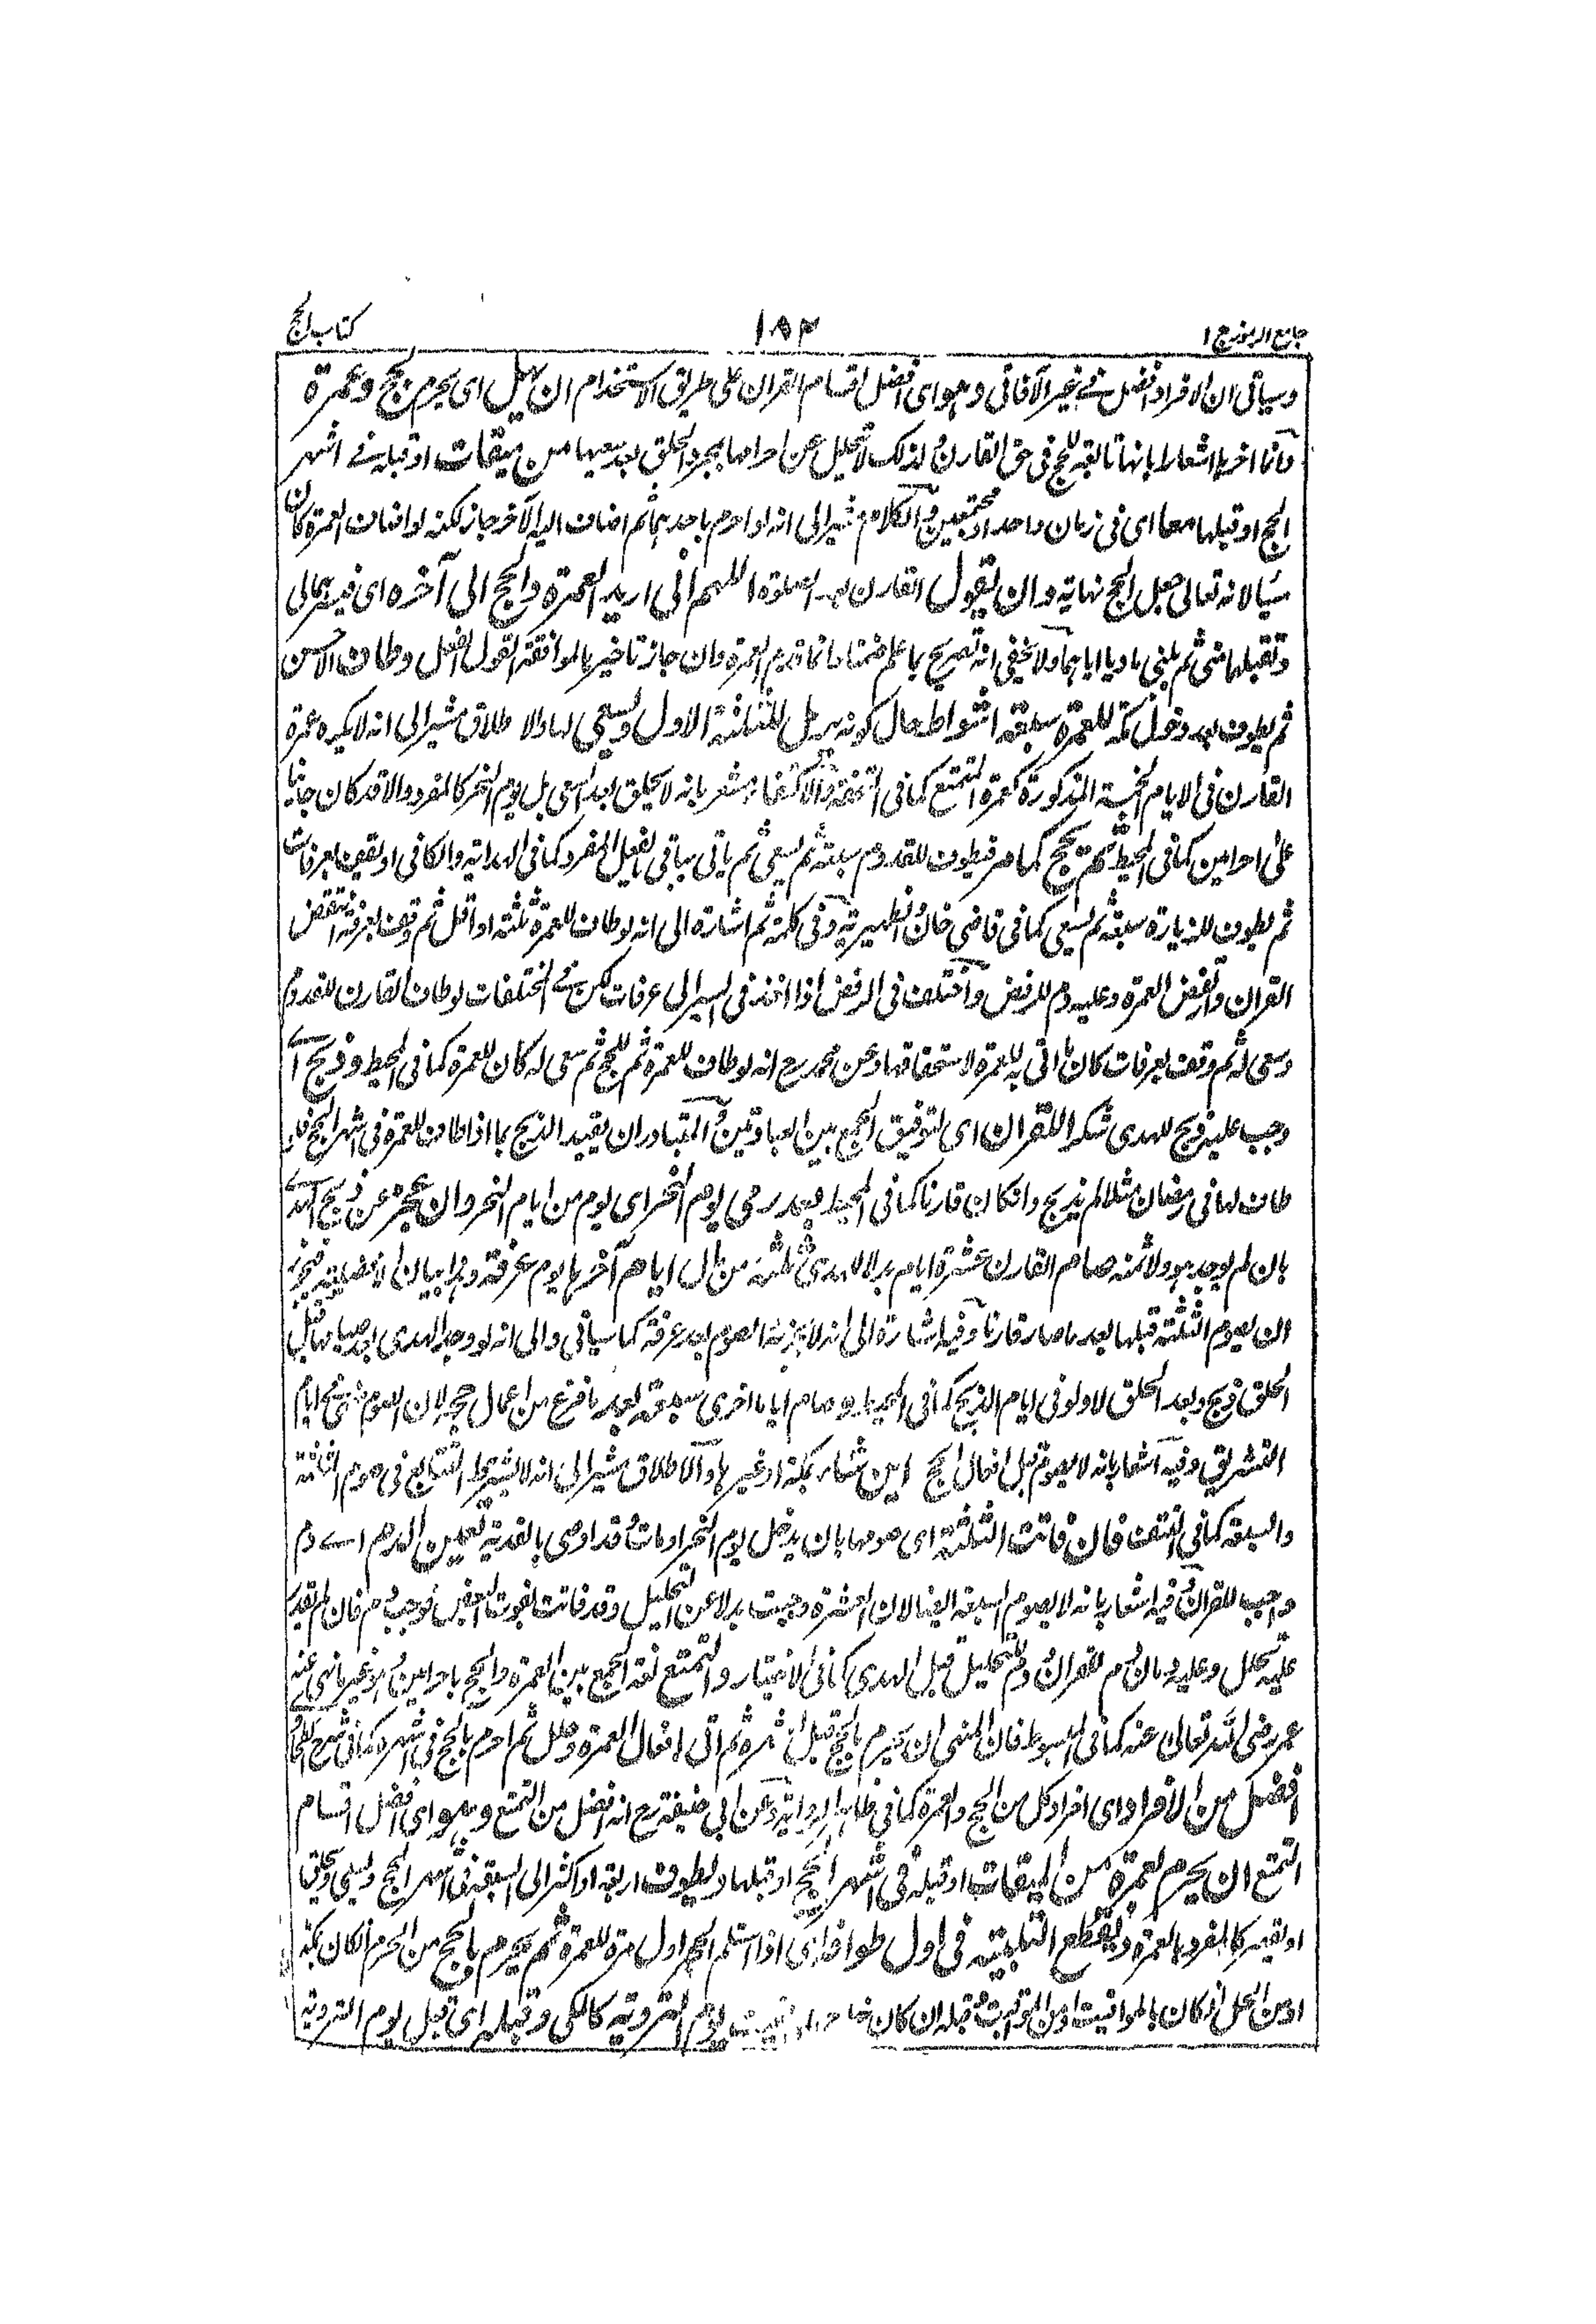 جامع الرموز ج ١ ١٨٢ كتاب الحج
وسياتي ان الافراد افضل في غير الآفاقي وهو اي افضل اقسام القران على طريق الاستخدام ان يهل اي يحرم بحج وعمرة
وانما اخرها اشعارا بانها تابعة للحج في حق القارن ولذلك لا تحليل عن احرامها بمجرد الحلق بعد سعيها من ميقات او قبله في اشهر
الحج او قبلها معا اي في زمان واحد او مجتمعين والكلام مشير الى انه لو احرم باحدهما ثم اضاف اليه الآخر جاز لكنه لو اضاف العمرة كان
سيئا لانه تعالى جعل الحج نهاية وان يقول القارن بعد الصلوة اللهم اني اريد العمرة والحج الى آخره اي فيسرهما لي
وتقبلهما مني ثم يلبي ناويا اياهما ولا يخفى انه تصريح بما علم ضمنا وانما قدم العمرة وان جاز تاخيرها لموافقة القول الفعل وطاف الاحسن
ثم يطوف بعد دخول مكة للعمرة سبعة اشواط حال كونه يرمل للثلثة الاول ويسعى لها والاطلاق مشير الى انه لا يكره عمرة
القارن في الايام الخمسة المذكورة كعمرة المتمتع كما في التحفة والاكتفاء مشعر بانه لا يحلق بعد السعي بل يوم النحر كالمفرد والا قد كان جانيا
على احرامين كما في المحيط ثم يحج كما مر فيطوف للقدوم سبعة ثم يسعى ثم ياتي بباقي افعال المفرد كما في الهداية والكافي او يقف بعرفات
ثم يطوف للزيارة سبعة ثم يسعى كما في قاضي خان والظهيرية وفي كلمة ثم اشارة الى انه لو طاف للعمرة ثلثة او اقل ثم وقف بعرفة انتقض
القران وارتفض العمرة وعليه دم للرفض واختلف في الرفض اذا اخذ في السير الى عرفات لكن في المختلفات لو طاف القارن للقدوم
وسعى له ثم وقف بعرفات كان ما اتى به للعمرة لاستحقاقها وعن محمد رح انه لو طاف للعمرة ثم للحج ثم سعى له كان للعمرة كما في المحيط وذبح اي
وجب عليه ذبح للهدي شكرا للقران اي لتوفيق الجمع بين العبادتين والمتبادر ان يقيد الذبح بما اذا طاف للعمرة في اشهر الحج فلو
طاف لها في رمضان مثلا لم يذبح وان كان قارنا كما في المحيط بعد رمي يوم النحر اي يوم من ايام النحر وان عجز عن ذبح الهدي
بان لم يوجد هو ولا ثمنه صام القارن عشرة ايام بدلا للهدي ثلثة من تلك ايام آخرها يوم عرفة وهذا بيان الافضلية فيجوز
ان يصوم الثلثة قبلها بعد ما صار قارنا وفيه اشارة الى انه لا يجزئه الصوم بعد عرفة كما سياتي والى انه لو وجد الهدي بعد صيامها قبل
الحلق ذبح وبعد الحلق لا ولو في ايام الذبح كما في المحيط و صام اياما اخرى سبعة بعد ما فرغ من اعمال حجه لان الصوم منهي في ايام
التشريق وفيه اشعار بانه لا يصوم قبل افعال الحج اين شاء بمكة او غيرها والاطلاق مشير الى انه لا يشترط التتابع في صوم الثلثة
والسبعة كما في النتف فان فاتت الثلثة اي صومها بان يدخل يوم النحر او مات وقد اوصى بالفدية تعين الدم اي دم
واجب للقران وفيه اشعار بانه لا يصوم السبعة ايضا لان العشرة وجبت بدلا عن التحليل وقد فاتت بفوت البعض فوجب دم فان لم يقدر
عليه تحلل وعليه دمان دم للقران ودم للتحليل قبل الهدي كما في الاختيار والتمتع لغة الجمع بين العمرة والحج باحرامين وهو غير ما نهى عنه
عمر رضي الله تعالى عنه كما في المبسوط فان المنهي ان يحرم بالحج قبل اشهره ثم اتى افعال العمرة وتحلل ثم احرم بالحج في اشهره كما في شرح
افضل من الافراد اي افراد كل من الحج والعمرة كما في ظاهر الرواية وعن ابي حنيفة رح انه افضل من التمتع وهو اي افضل اقسام
التمتع ان يحرم بعمرة من الميقات او قبله في اشهر الحج او قبلها ويطوف اربعة او اكثر الى السبعة في اشهر الحج ويسعى ويحلق
او يقصر كالمفرد بالعمرة ويقطع التلبية في اول طوافه اي اذا استلم الحجر اول مرة للعمرة ثم يحرم بالحج من الحرم ان كان بمكة
او من الحل ان كان بالمواقيت او من المواقيت قبله ان كان يوم التروية كالمكي وقبله اي قبل يوم التروية